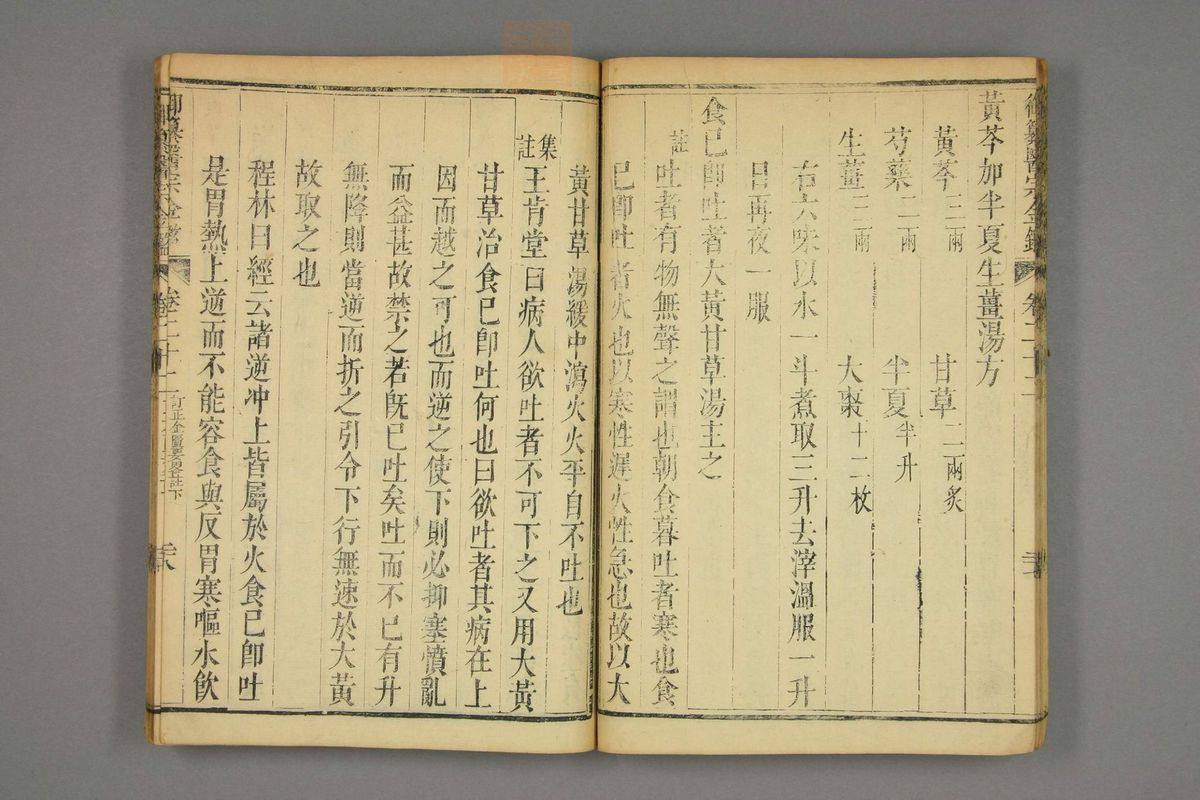 御纂醫宗金鑑 卷二十二
黃芩加半夏生薑湯方
黃芩三兩 甘草二兩炙
芍藥二兩 半夏半升
生薑三兩 大棗十二枚
右六味以水一斗煮取三升去滓溫服一升
日再夜一服
食已卽吐者大黃甘草湯主之
註吐者有物無聲之謂也朝食暮吐者寒也食
已卽吐者火也以寒性遲火性急也故以大
黃甘草湯緩中瀉火火平自不吐也
集註王肯堂曰病人欲吐者不可下之又用大黃
甘草治食已卽吐何也曰欲吐者其病在上
因而越之可也而逆之使下則必抑塞憤亂
而益甚故禁之若旣已吐矣吐而不已有升
無降則當逆而折之引令下行無速於大黃
故取之也
程林曰經云諸逆冲上皆屬於火食已卽吐
是胃熱上逆而不能容食與反胃寒嘔水飮
御纂醫宗金鑑 卷二十二 訂正金匱要畧註下